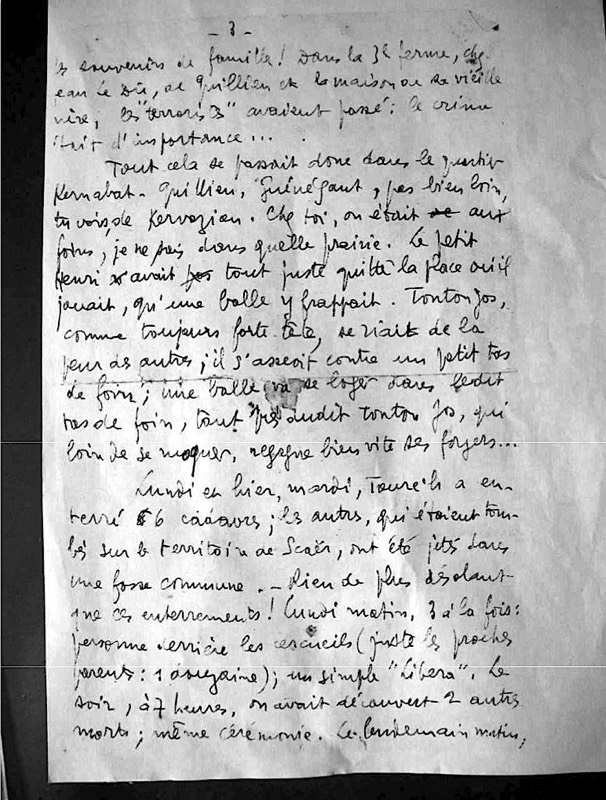 - 3 -
souvenirs de famille ! Dans la 3e ferme, chez
Jean Le Dû, de Quillien et la maison de sa vieille
mère, les "terroristes" avaient passé : le crime
était d'importance...
Tout cela se passait donc dans le quartier
Kernabat - Quillien, Guénégant, pas bien loin,
tu vois, de Kervozian. Chez toi, on était aux
foins, je ne sais dans quelle prairie. Le petit
Henri avait tout juste quitté la place où il
jouait, qu'une balle y frappait. Tonton Jos,
comme toujours forte tête, se riait de la
peur des autres ; il s'asseoit contre un petit tas
de foin ; une balle va se loger dans ledit
tas de foin, tout près dudit tonton Jos, qui
loin de se moquer, regagne bien vite ses foyers...
Lundi et hier, mardi, Tourc'h a en-
terré 6 cadavres ; les autres, qui étaient tom-
bés sur le territoire de Scaër, ont été jetés dans
une fosse commune. - Rien de plus désolant
que ces enterrements ! Lundi matin, 3 à la fois :
personne derrière les cercueils (juste les proches
parents : 1 douzaine) ; un simple "Libera". Le
soir, à 7 heures, on avait découvert 2 autres
morts ; même cérémonie. Le lendemain matin,